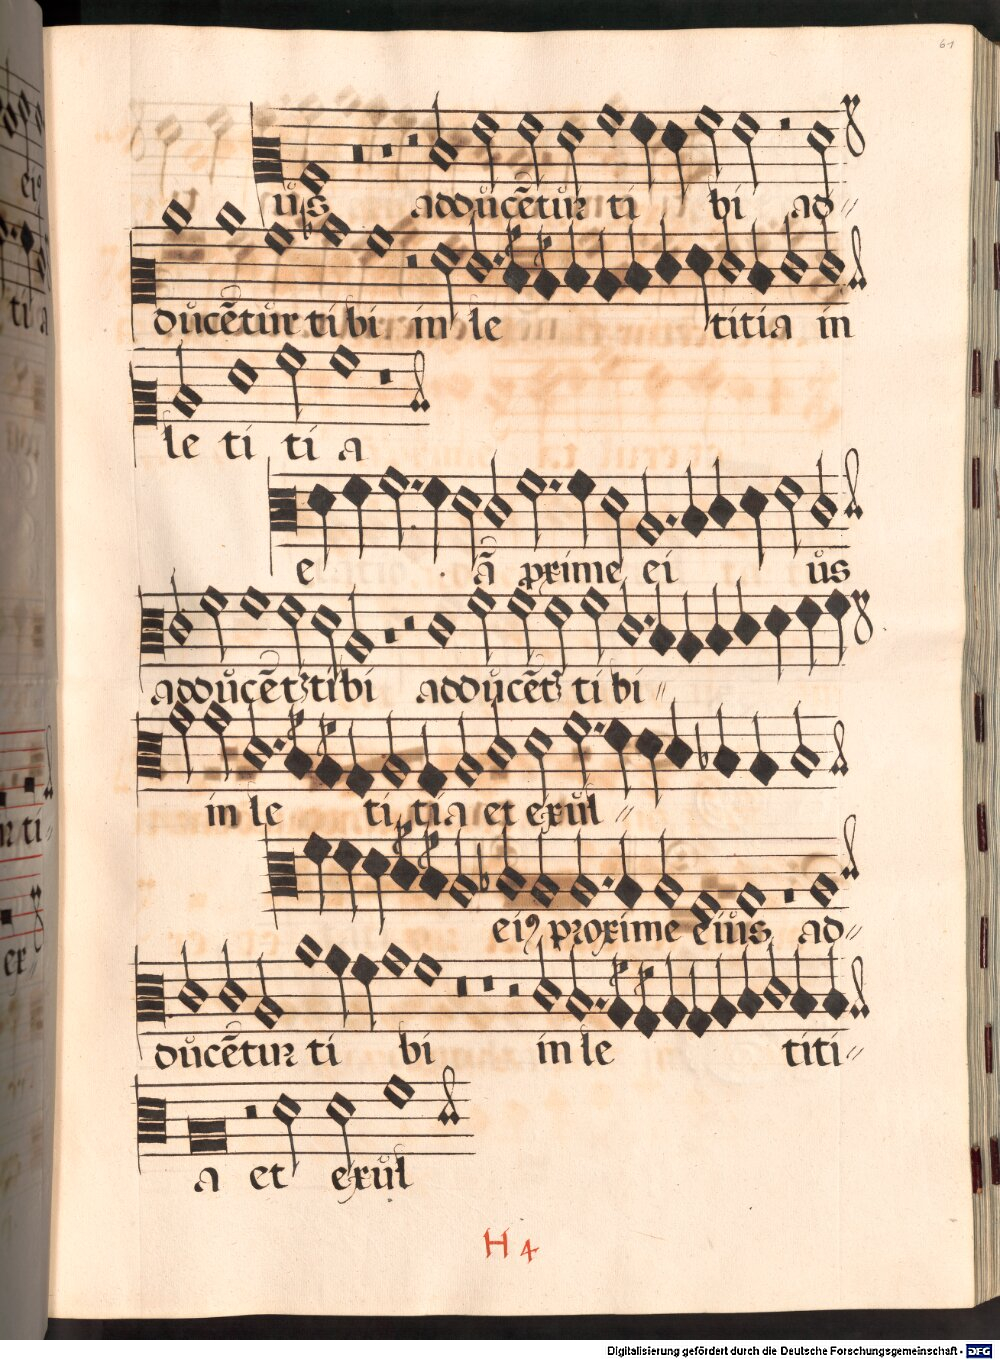 61
ůs adducẽtur ti bi ad〃
ducẽtur tibi in le titia in
le ti ti a
e ã proxime ei ůs
adducẽtꝛ tibi adducẽtꝛ tibi〃
in le ti tia et exul〃
eiꝰ proxime eius ad〃
ducẽtur ti bi in le titi〃
a et exul
H 4
Digitalisierung gefördert durch die Deutsche Forschungsgemeinschaft - DFG